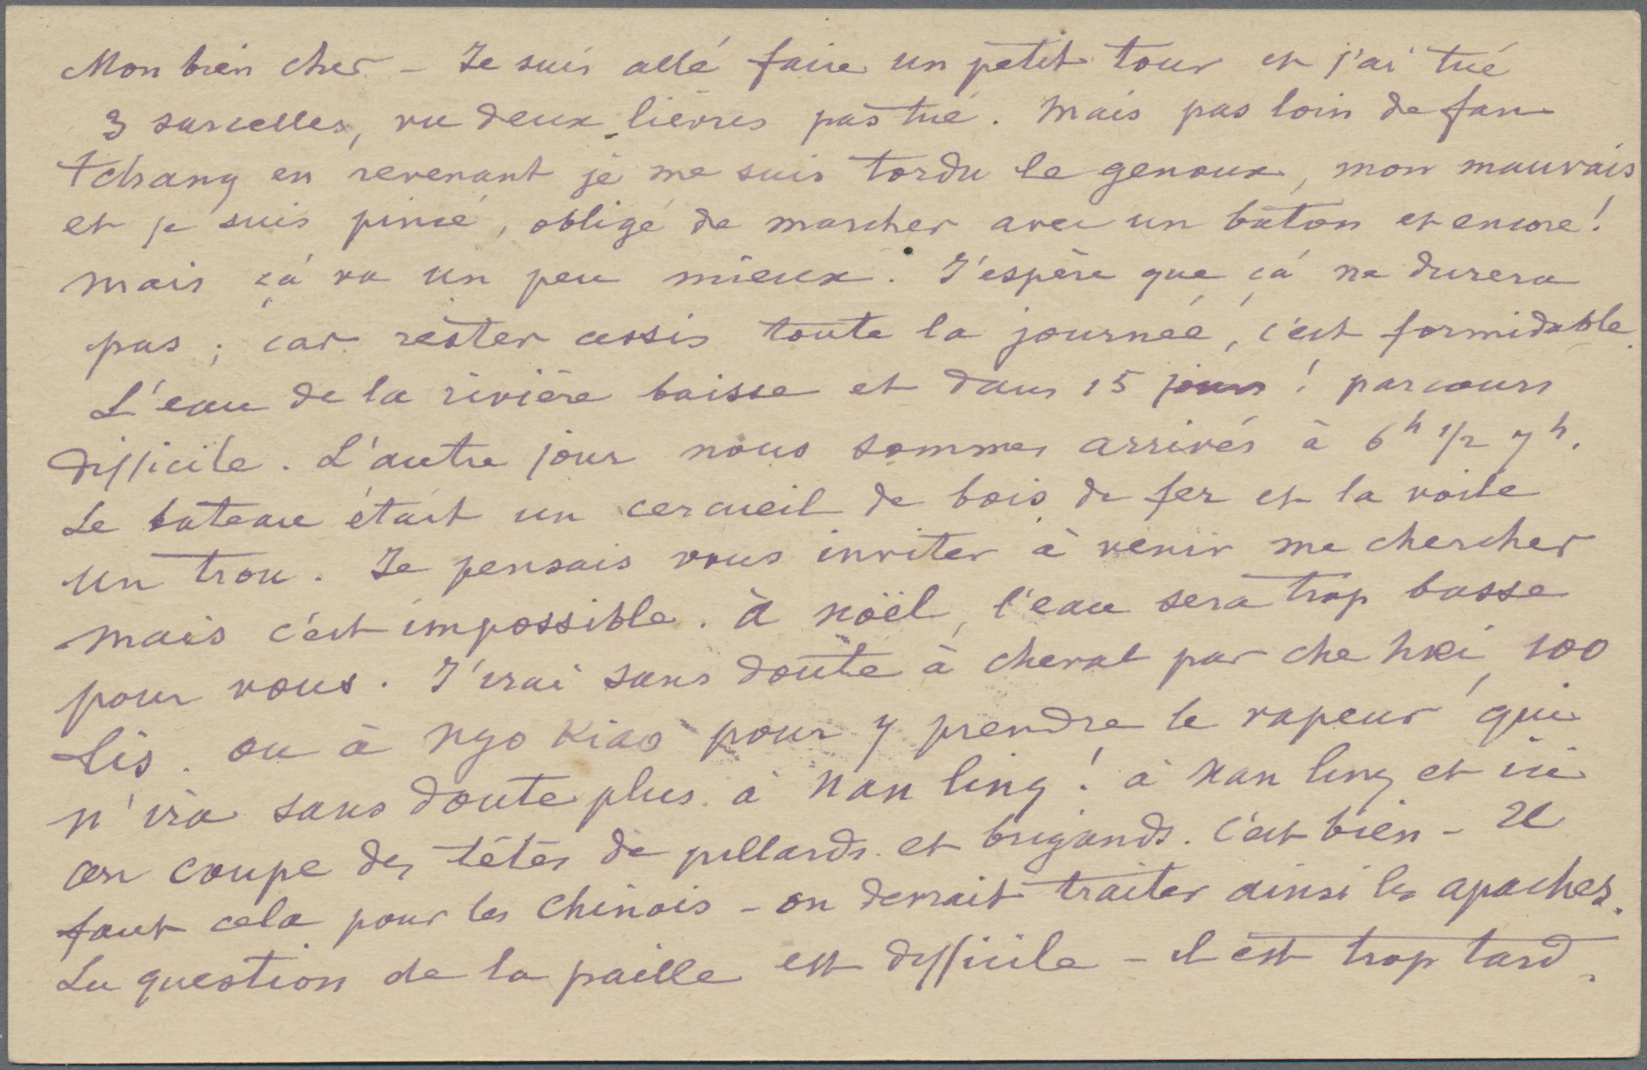 Mon bien cher – Je suis allé faire un petit tour et j'ai tué
3 sarcelles, vu deux lièvres pas tué. Mais pas loin de fan
tchang en revenant je me suis tordu le genoux, mon mauvais
et je suis pincé, obligé de marcher avec un bâton et encore!
mais çà va un peu mieux. J'espère que çà ne durera
pas; car rester assis toute la journée, c'est formidable.
L'eau de la rivière baisse et dans 15 jours! parcours
difficile. L'autre jour nous sommes arrivés à 6h 1/2 7h.
Le bateau était un cercueil de bois de fer et la voile
un trou. Je pensais vous inviter à venir me chercher
mais c'est impossible. à noël, l'eau sera trop basse
pour vous. J'irai sans doute à cheval par che hki 100
lis. ou à Ngo Kiao pour y prendre le vapeur qui
n'ira sans doute plus à Nan ling! à Nan ling et ici
on coupe des têtes de pillards et brigands. C'est bien – Il
faut cela pour les chinois – on devrait traiter ainsi les apaches.
La question de la paille est difficile – il est trop tard.